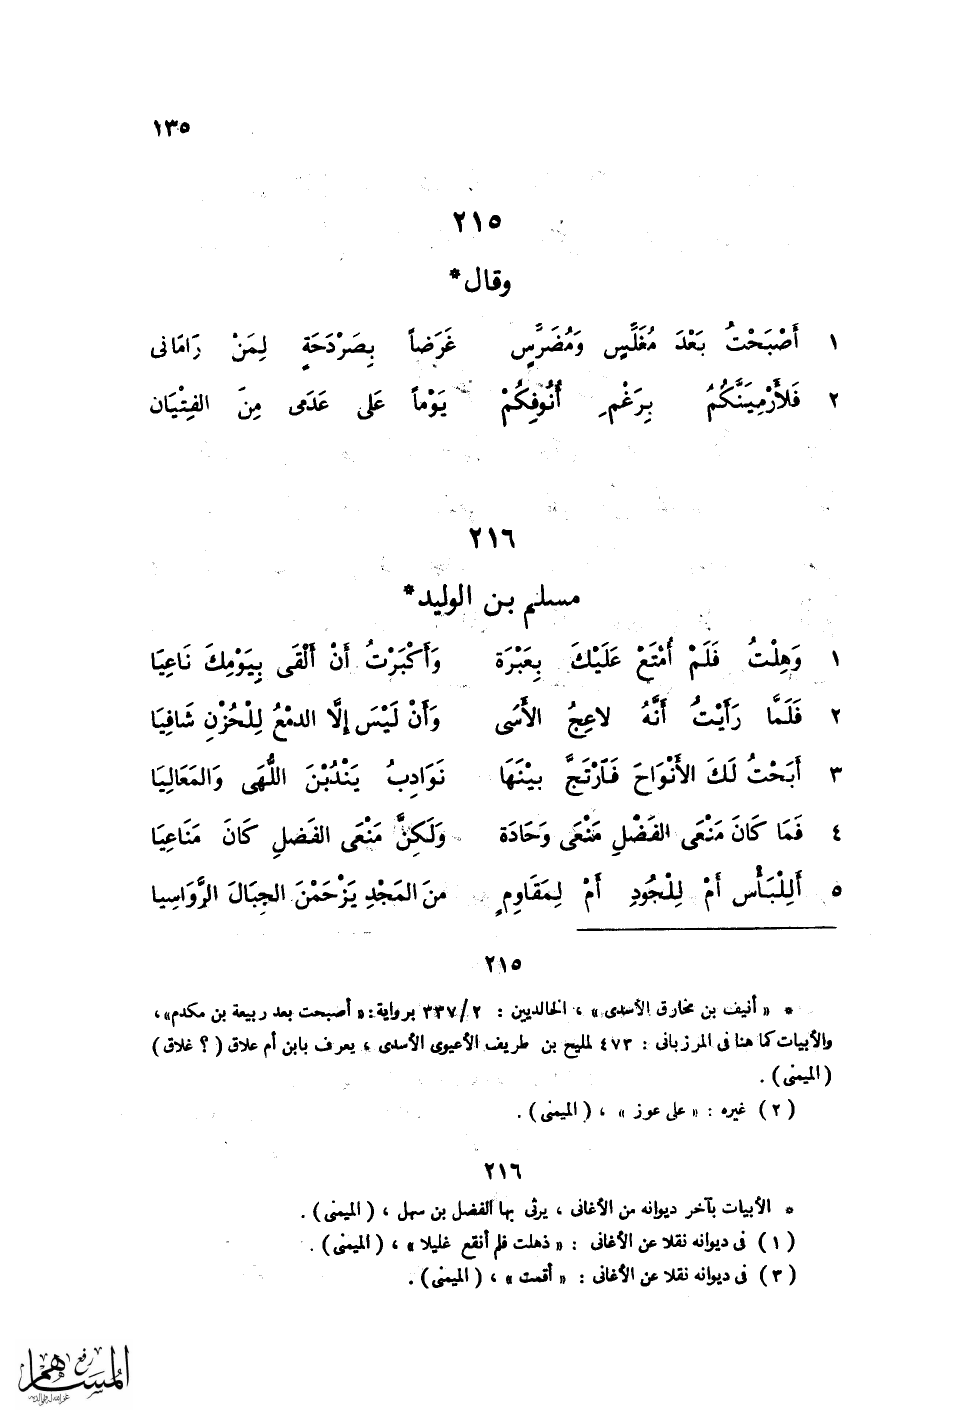 ١٣٥
٢١٥
وقال*
١ أَصْبَحْتُ بَعْدَ مُغَلِّسٍ وَمُضَرِّسٍ غَرَضاً بِصَرْدَحَةٍ لِمَنْ رَامَانى
٢ فَلأَرْمِيَنَّكُمُ بِرَغْمِ أُنُوفِكُمْ يَوْماً عَلَى عَدَمى مِنَ الفِتْيَان
٢١٦
مسلم بن الوليد*
١ وَهِلْتُ فَلَمْ أُمْتَعْ عَلَيْكَ بِعَبْرَة وَأَكْبَرْتُ أَنْ أَلْقَى بِيَوْمِكَ نَاعِيَا
٢ فَلَمَّا رَأَيْتُ أَنَّهُ لاعِجُ الأَسَى وَأَنْ لَيْسَ إِلَّا الدمْعُ لِلْحُزْنِ شَافِيَا
٣ أَبَحْتُ لَكَ الأَنْوَاحَ فَارْتَجَّ بيْنَهَا نَوَادِبُ يَنْدُبْنَ اللُّهَى وَالمَعَالِيَا
٤ فَمَا كَانَ مَنْعَى الفَضْلِ مَنْعَى وَحَادَة وَلَكِنَّ مَنْعَى الفَضلِ كَانَ مَنَاعِيَا
٥ أَلِلْبَأْس أَمْ لِلْجُودِ أَمْ لِمَقَاوِمٍ منَ المَجْدِ يَزْحَمْنَ الجِبَالَ الرَّوَاسِيا
٢١٥
* « أنيف بن مخارق الأسدى » ، الخالديين : ٢/ ٣٣٧ برواية : « أصبحت بعد ربيعة بن مكدم » ،
والأبيات كما هنا فى المرزبانى : ٤٧٣ لمليح بن طريف الأعيوى الأسدى ، يعرف بابن أم علاق ( ؟ غلاق )
( الميمنى ) .
( ٢ ) غيره : « على عوز » ، ( الميمنى ) .
٢١٦
* الأبيات بآخر ديوانه من الأغانى ، يرثى بها الفضل بن سهل ، ( الميمنى ) .
( ١ ) فى ديوانه نقلا عن الأغانى : « ذهلت فلم أنقع غليلا » ، ( الميمنى ) .
( ٣ ) فى ديوانه نقلا عن الأغانى : « أقمت » ، ( الميمنى ) .
رفع
المساهم